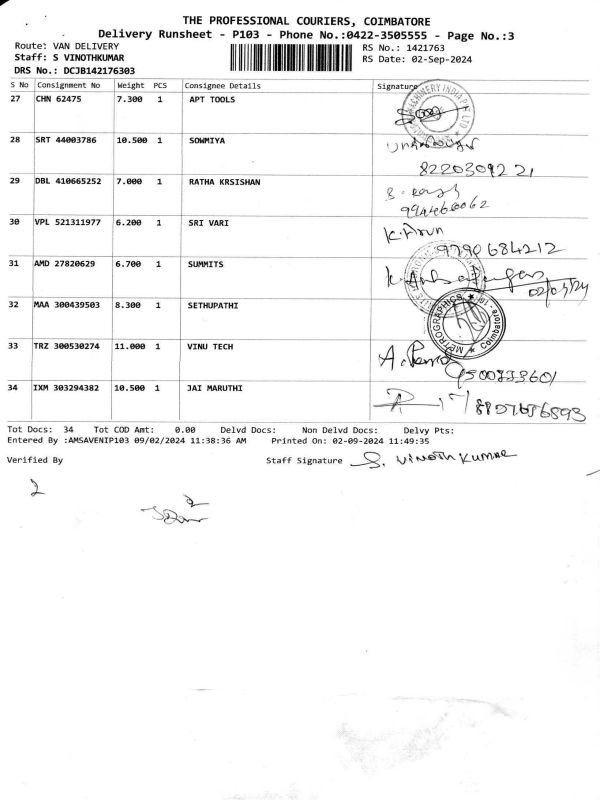 THE PROFESSIONAL COURIERS, COIMBATORE
Delivery Runsheet - P103 - Phone No.:0422-3505555 - Page No.:3
Route: VAN DELIVERY
RS No.: 1421763
Staff: S VINOTHKUMAR
RS Date: 02-Sep-2024
DRS No.: DCJB142176303
S No Consignment No Weight PCS Consignee Details Signature
27 CHN 62475 7.300 1 APT TOOLS
28 SRT 44003786 10.500 1 SOWMIYA
8220309221
29 DBL 410665252 7.000 1 RATHA KRSISHAN
9944660062
30 VPL 521311977 6.200 1 SRI VARI K. Arun
9790684212
31 AMD 27820629 6.700 1 SUMMITS
32 MAA 300439503 8.300 1 SETHUPATHI
METROGRAPHICS Coimbatore - 18
33 TRZ 300530274 11.000 1 VINU TECH
34 IXM 303294382 10.500 1 JAI MARUTHI
Tot Docs: 34 Tot COD Amt: 0.00 Delvd Docs: Non Delvd Docs: Delvy Pts:
Entered By :AMSAVENIP103 09/02/2024 11:38:36 AM Printed On: 02-09-2024 11:49:35
Verified By Staff Signature S. VINOTH KUMAR
2
2